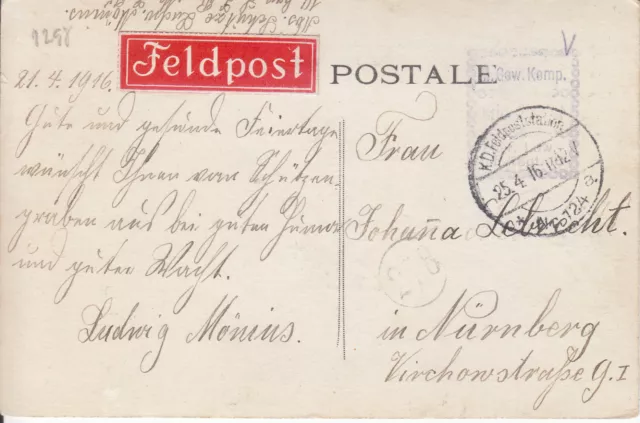 1298
Abs. Schütze Ludw. Mönius.
Feldpost
POSTALE
21.4.1916.
Gute und gesunde Feiertage
wünscht Ihnen vom Schützen-
graben aus bei guten Humor
und guter Wacht.
Ludwig Mönius.
Gew. Komp.
K.D. Feldpoststation
25.4.16.
Nr. 124
a
Frau
Johaña Lebrecht.
in Nürnberg
Virchowstraße 9.I